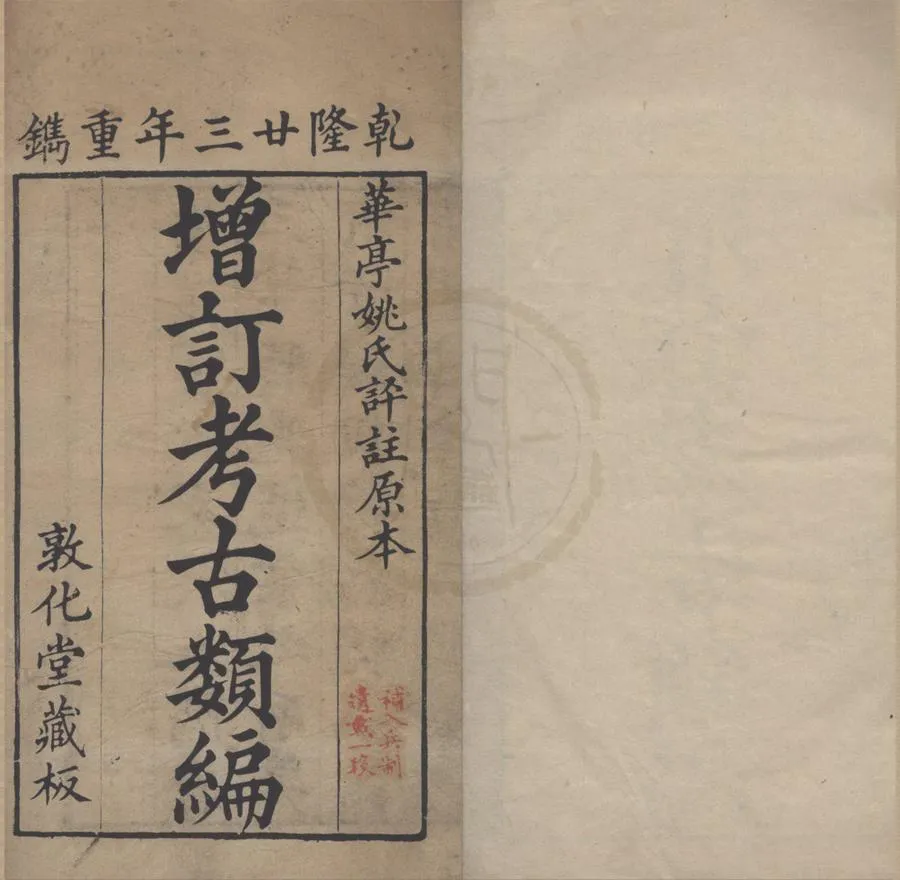 乾隆廿三年重鐫
華亭姚氏評註原本
補入兵制
增訂考古類編
敦化堂藏板